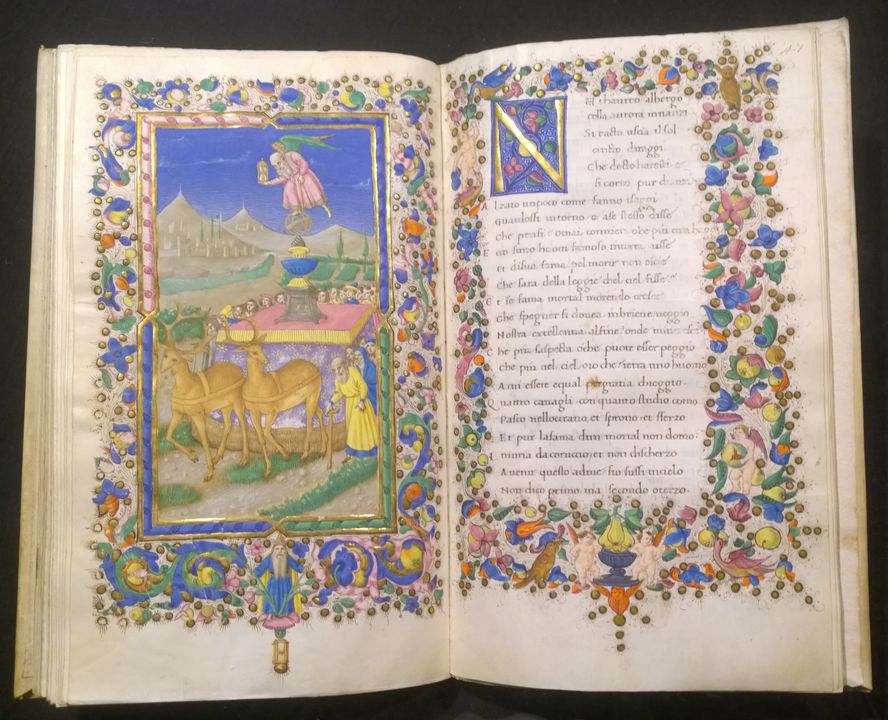 N El thaureo albergo
colla aurora innanzi
Si ratto usciua il sol
cinto diraggi
Che detto haresti e
si corco pur dianzi
Alzato unpoco come fanno isaggi
Guardossi intorno et ase stesso disse
Che pensi omai conuien che piu cura haggi
Ecco sano huom famoso interra uisse
et disua fama pel morir non escie
Che sara della leggie chel ciel fisse
Et se fama mortal morendo cresce
Che spegner si douea inbrieue ueggio
Nostra excellenna alfine onde mincresce
Che piu saspecta oche puote esser peggio
Che piu nel ciel oio che interra uno huomo
A cui esser equal pergratia cheggio
Quattro cauagli con quanto studio como
Pasco nelloceano et sprono et sferzo
Et pur lafama dun mortal non domo
Iniuria dacoruccio et non discherzo
Auenir questo adme sio fussi incielo
Non dico primo ma secondo oterzo